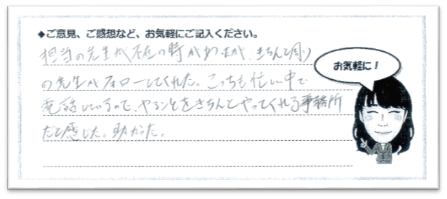 ◆ご意見、ご感想など、お気軽にご記入ください。
担当の先生が不在の時があったが、きちんと周り
の先生がフォローしてくれた。こっちも忙しい中で
電話しているので、やることをきちんとやってくれる事務所
だと感じた。助かった。
お気軽に！